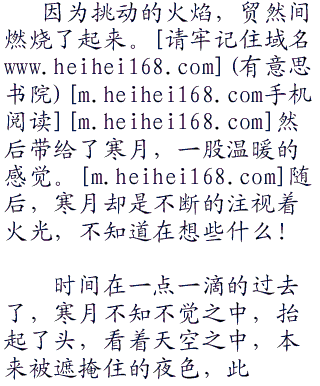 因为挑动的火焰，贸然间
燃烧了起来。[请牢记住域名
www.heihei168.com](有意思
书院)[m.heihei168.com手机
阅读][m.heihei168.com]然
后带给了寒月，一股温暖的
感觉。[m.heihei168.com]随
后，寒月却是不断的注视着
火光，不知道在想些什么！
时间在一点一滴的过去
了，寒月不知不觉之中，抬
起了头，看着天空之中，本
来被遮掩住的夜色，此